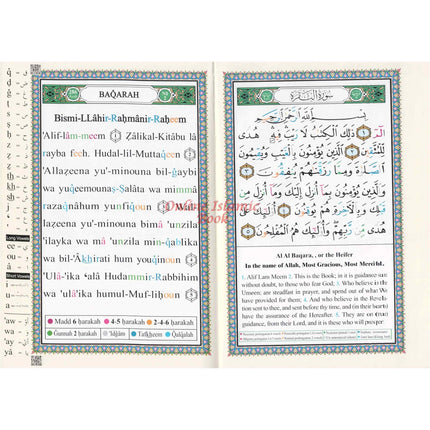 BAQARAH
Bismi-LLâhir-Raḥmânir-Raḥeem
'Alif-lâm-meem ① Zâlikal-Kitâbu lâ
rayba feeh Hudal-lil-Muttaqeen ②
'Allazeena yu'-minouna bil-ġaybi
wa yuqeemounaṣ-Ṣalâta wa mimmâ
razaqnâhum yunfiqoun ③ Wallazeena
yu'-minouna bimâ 'unzila
'ilayka wa mâ 'unzila min-qablika
wa bil-'Âkhirati hum youqinoun ④
'Ulâ-'ika ʿalâ Hudammir-Rabbihim
wa 'ulâ'ika humul-Muf-liḥoun ⑤
Madd 6 ḥarakah
4-5 ḥarakah
2-4-6 ḥarakah
Ġunnah 2 ḥarakah
'Idġâm
Tafkheem
Qalqalah
Long Vowels
Short Vowels
سورة البقرة
بِسْمِ اللَّهِ الرَّحْمَٰنِ الرَّحِيمِ
الٓمٓ ١ ذَٰلِكَ الْكِتَٰبُ لَا رَيْبَ فِيهِ هُدًى
لِّلْمُتَّقِينَ ٢ الَّذِينَ يُؤْمِنُونَ بِالْغَيْبِ وَيُقِيمُونَ
الصَّلَوٰةَ وَمِمَّا رَزَقْنَٰهُمْ يُنفِقُونَ ٣
وَالَّذِينَ يُؤْمِنُونَ بِمَا أُنزِلَ إِلَيْكَ وَمَا أُنزِلَ مِن
قَبْلِكَ وَبِالْآخِرَةِ هُمْ يُوقِنُونَ ٤ أُولَٰئِكَ عَلَىٰ
هُدًى مِّن رَّبِّهِمْ وَأُولَٰئِكَ هُمُ الْمُفْلِحُونَ ٥
Al Al Baqara, , or the Heifer
In the name of Allah, Most Gracious, Most Merciful.
1. Alif Lam Meem 2. This is the Book; in it is guidance sure
without doubt, to those who fear God; 3. Who believe in the
Unseen; are steadfast in prayer, and spend out of what We
have provided for them; 4. And who believe in the Revela-
tion sent to thee, and sent before thy time, and (in their hearts)
have the assurance of the Hereafter. 5. They are on (true)
guidance, from their Lord, and it is these who will prosper
Online Islamic
Book